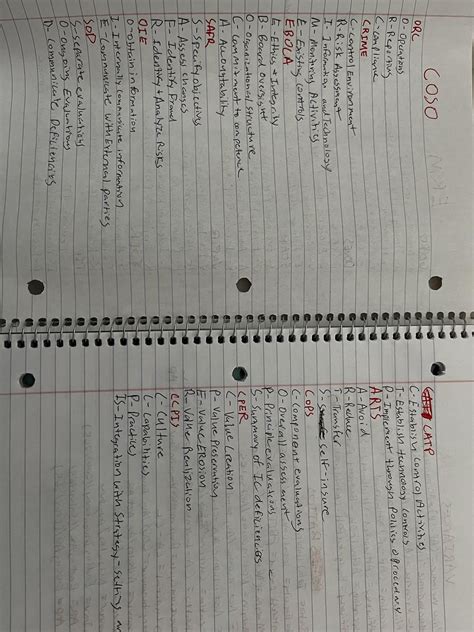 COSO
ORC
O- Operations
R- Reporting
C- Compliance
CRIME
C- Control Environment
R- Risk Assessment
I- Information and Technology
M- Monitoring Activities
E- Existing Controls
EBOCA
E- Ethics & Integrity
B- Board oversight
O- Organizational Structure
C- Commitment to competence
A- Accountability
SAFR
S- Specify objectives
A- Assess changes
F- Identify Fraud
R- Identify & Analyze Risks
OIE
O- obtain information
I- Internally communicate information
E- Communicate with External parties
SOD
S- Separate evaluations
O- Ongoing Evaluations
D- Communicate Deficiencies
CATP
C- Establish Control Activities
T- Establish technology controls
P- Implement through Policies & Procedures
ARTS
A- Avoid
R- Reduce
T- Transfer
S- Self-insure
COPS
C- Component evaluations
O- Overall assessment
P- Principle evaluations
S- Summary of IC deficiencies
CPER
C- Value Creation
P- Value Preservation
E- Value Erosion
R- Value Realization
CCPIS
C- Culture
C- Capabilities
P- Practices
IS- Integration with Strategy-setting